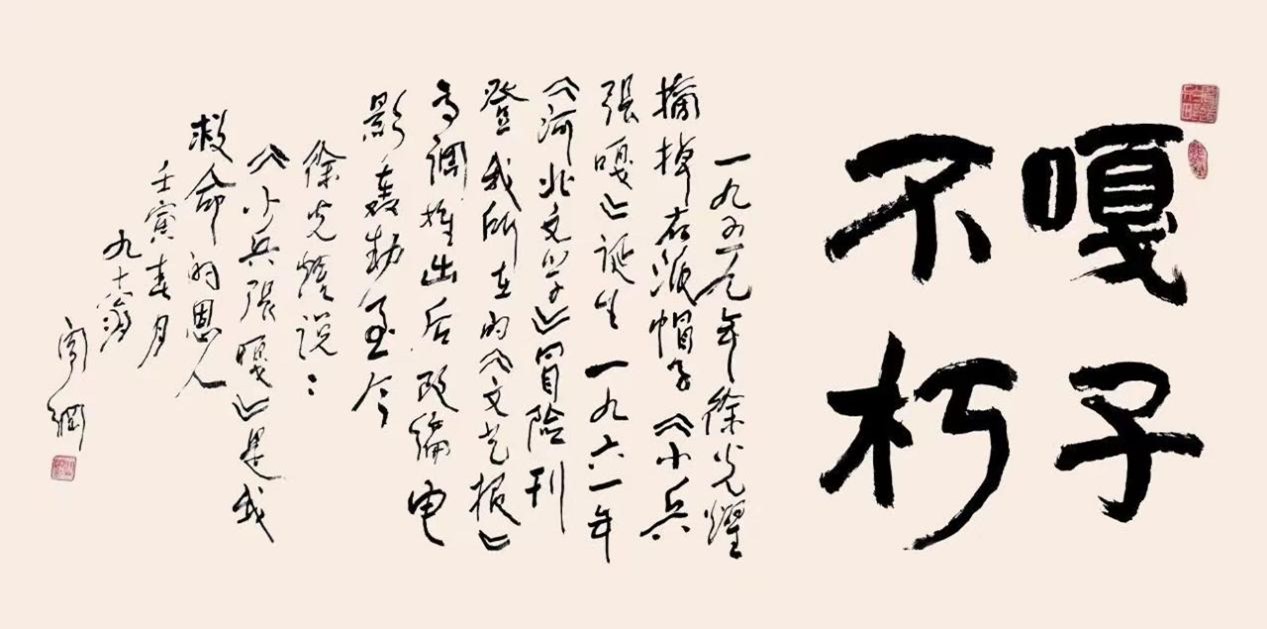 嘎子
不朽
一九五九年徐光耀
摘掉右派帽子《小兵
張嘎》诞生一九六一年
《河北文学》冒险刊
登我所在的《文艺报》
高调推出后改编电
影轰动至今
徐光耀说：
《小兵張嘎》是我
救命的恩人
壬寅春月
九十
阎綱